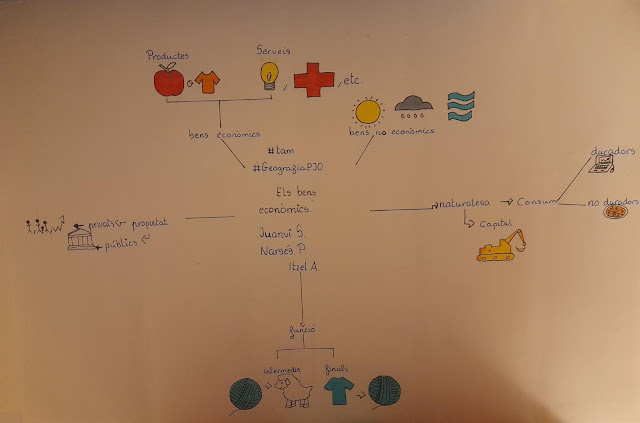 Productes
Serveis
o
, , etc
bens econòmics
bens no econòmics.
#tam
#GeografiaP30
Els bens
econòmics.
Juanvi S.
Narsés P.
Itzel A.
privats
propietat
públics
naturalesa
Consum
duradors
no duradors
Capital
funció
intermedis
finals